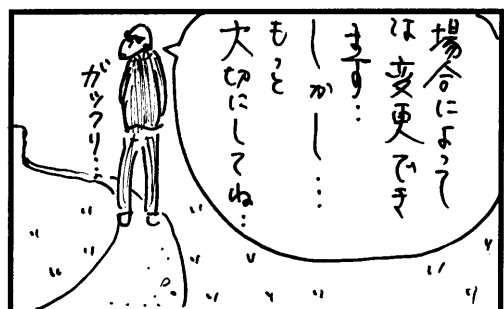 場合によって
は変更でき
ます…
しかし…
もっと
大切にしてね…
ガックリ…